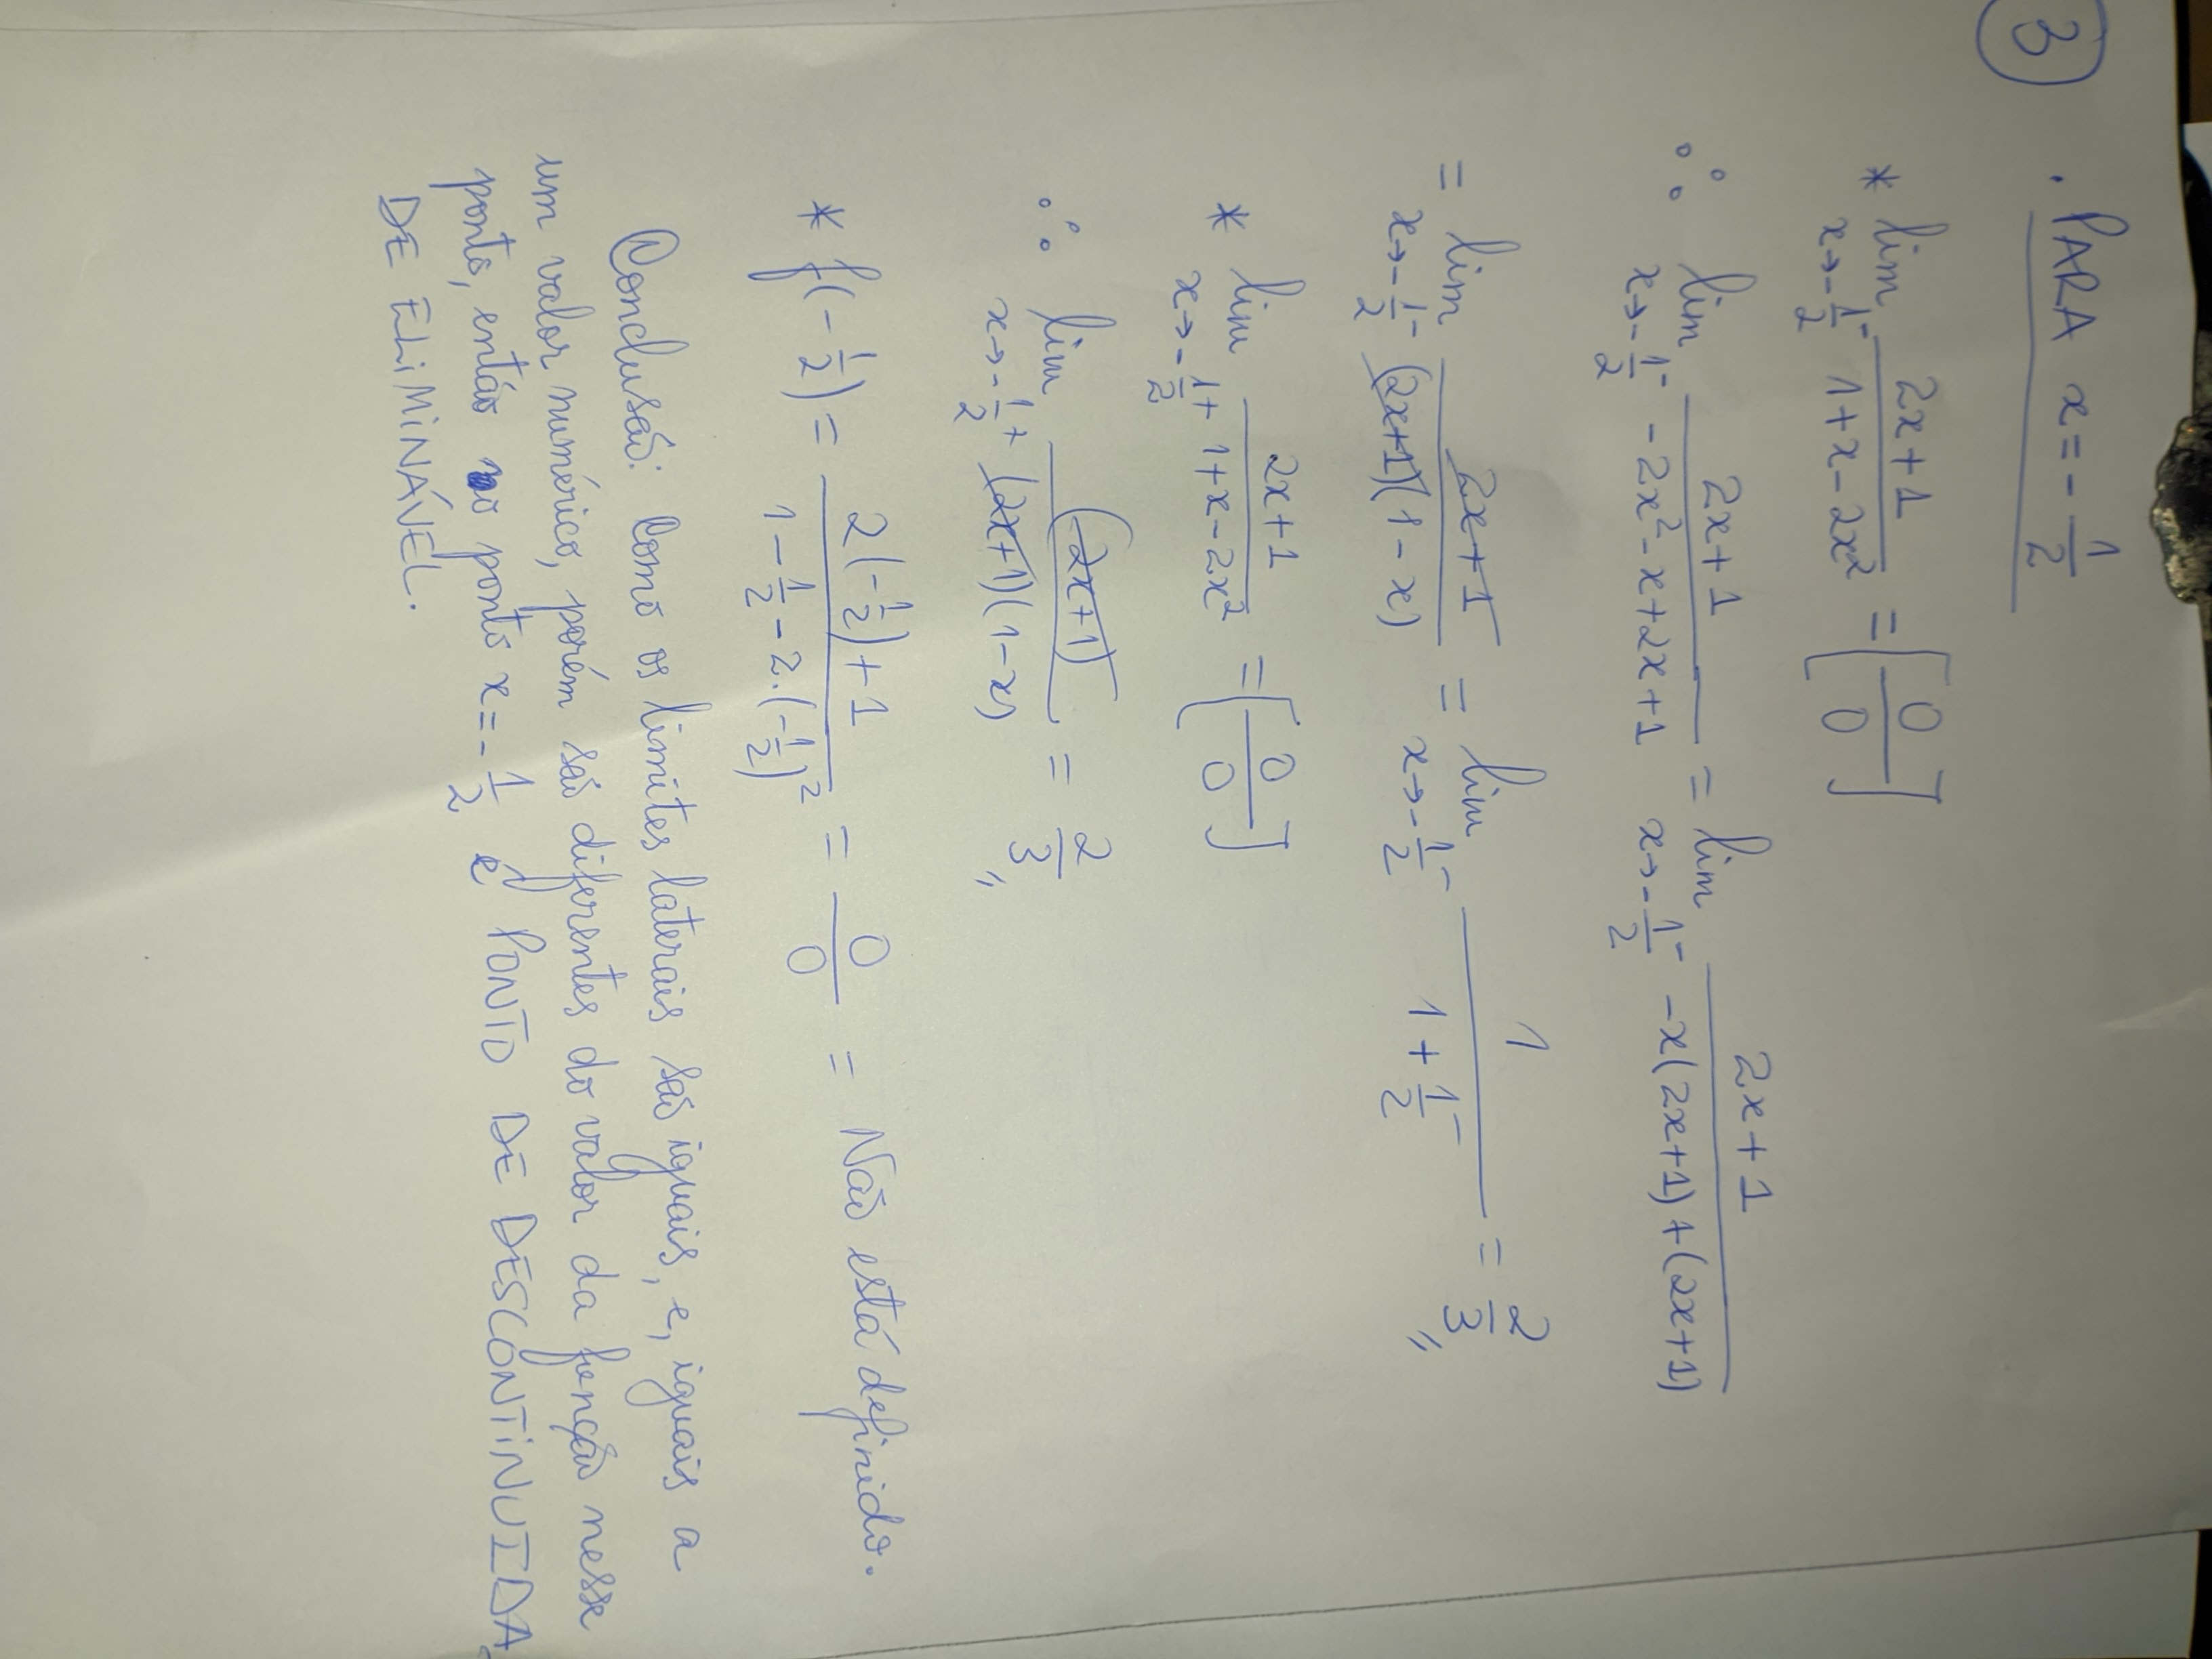 3
. PARA x = - 1/2
* lim x→-1/2⁻ (2x+1)/(1+x-2x²) = [0/0]
∴ lim x→-1/2⁻ (2x+1)/(-2x²-x+2x+1) = lim x→-1/2⁻ (2x+1)/(-x(2x+1)+(2x+1))
= lim x→-1/2⁻ (2x+1)/((2x+1)(1-x)) = lim x→-1/2⁻ 1/(1+1/2⁻) = 2/3 〃
* lim x→-1/2⁺ (2x+1)/(1+x-2x²) = [0/0]
∴ lim x→-1/2⁺ (2x+1)/((2x+1)(1-x)) = 2/3 〃
* f(-1/2) = (2(-1/2)+1)/(1-1/2-2.(-1/2)²) = 0/0 = Não está definido.
Conclusão: Como os limites laterais são iguais, e, iguais a
um valor numérico, porém são diferentes do valor da função nesse
ponto, então no ponto x = - 1/2 é PONTO DE DESCONTINUIDA-
DE ELIMINÁVEL.